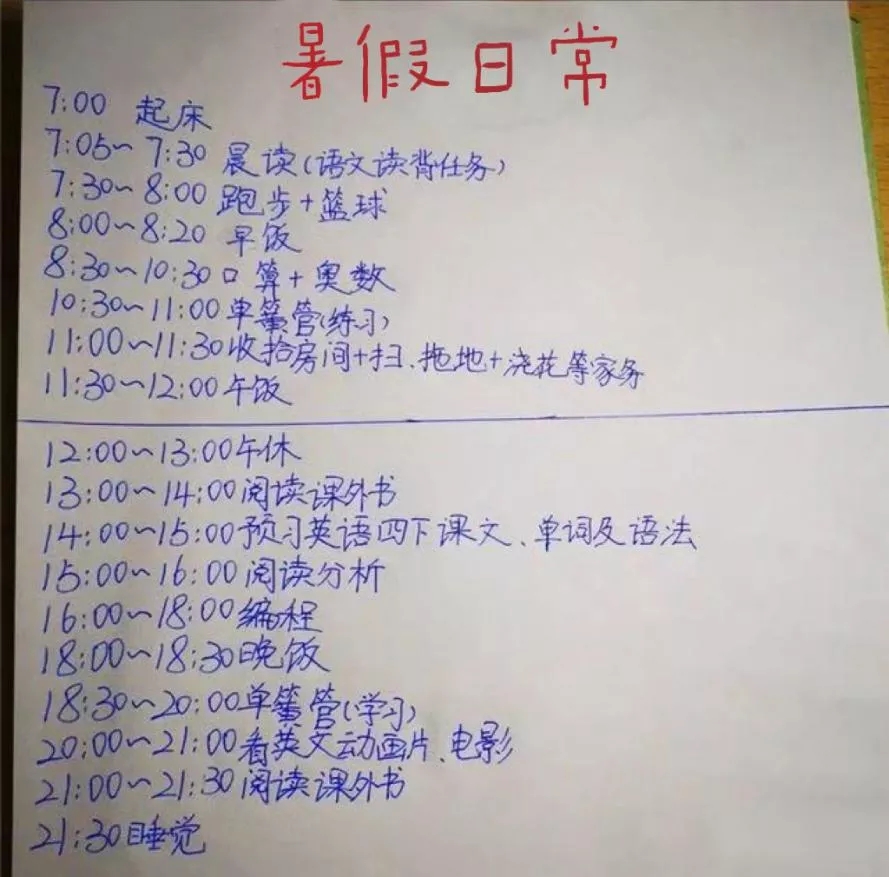 暑假日常
7:00 起床
7:05~7:30 晨读(语文读背任务)
7:30~8:00 跑步+篮球
8:00~8:20 早饭
8:30~10:30 口算+奥数
10:30~11:00 单簧管(练习)
11:00~11:30 收拾房间+扫、拖地+浇花等家务
11:30~12:00 午饭
12:00~13:00 午休
13:00~14:00 阅读课外书
14:00~15:00 预习英语四下课文、单词及语法
15:00~16:00 阅读分析
16:00~18:00 编程
18:00~18:30 晚饭
18:30~20:00 单簧管(学习)
20:00~21:00 看英文动画片、电影
21:00~21:30 阅读课外书
21:30 睡觉